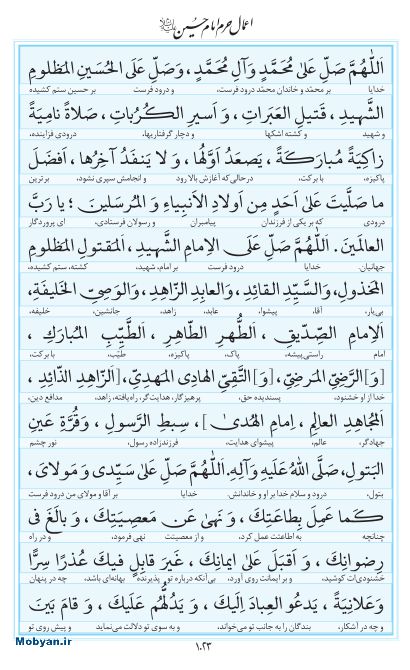 اعمال حرم امام حسین علیه‌السلام
اَللّٰهُمَّ صَلِّ عَلىٰ مُحَمَّدٍ وَآلِ مُحَمَّدٍ، وَصَلِّ عَلَى الْحُسَيْنِ الْمَظلُومِ
خدایا بر محمّد و خاندان محمّد درود فرست، و درود فرست بر حسین ستم کشیده
الشَّهِيدِ ، قَتيلِ العَبَراتِ ، وَ اَسيرِ الكُرُباتِ ، صَلاةً نامِيَةً
و شهید و کشته اشکها و دچار گرفتاریها، درودی فزاینده،
زاكِيَةً مُبارَكَةً ، يَصعَدُ اَوَّلُها ، وَ لا يَنفَدُ آخِرُها ، اَفضَلَ
پاکیزه، با برکت، درحالی‌که آغازش بالا رود و انجامش سپری نشود، برترین
ما صَلَّيتَ عَلىٰ اَحَدٍ مِن اَولادِ الاَنبِياءِ وَ المُرسَلينَ ؛ يا رَبَّ
درودی که بر یکی از فرزندان پیامبران و رسولان فرستادی، ای پروردگار
العالَمينَ. اَللّٰهُمَّ صَلِّ عَلَى الاِمامِ الشَّهيدِ ، اَلمَقتولِ المَظلومِ
جهانیان. خدایا درود فرست بر امام، شهید، کشته، ستم کشیده،
المَخذولِ، وَالسَّيِّدِ القائِدِ، وَالعابِدِ الزّاهِدِ، وَالوَصِيِّ الخَليفَةِ،
بی‌یار، آقا، پیشوا، عابد، زاهد، جانشین، خلیفه،
اَلاِمامِ الصِّدّيقِ ، اَلطُّهرِ الطّاهِرِ ، اَلطَّيِّبِ المُبارَكِ ،
امام راستی‌پیشه، پاک، پاکیزه، طیّب، با برکت،
[وَ]الرَّضِيِّ المَرضِيِّ ، [وَ]التَّقِيِّ الهادِی المَهدِيِّ، [اَلزّاهِدِ الذّائِدِ ،
خدا از او خشنود، پسندیده حق، پرهیزگار، هدایت‌گر، راه‌یافته، زاهد، مدافع دین،
اَلمُجاهِدِ العالِمِ ، اِمامِ الهُدىٰ] ، سِبطِ الرَّسولِ ، وَقُرَّةِ عَينِ
جهادگر، عالم، پیشوای هدایت، فرزندزاده رسول، نور چشم
البَتولِ، صَلَّى اللهُ عَلَيهِ وَآلِهِ. اَللّٰهُمَّ صَلِّ عَلىٰ سَيِّدی وَ مَولایَ ،
بتول، درود و سلام خدا بر او و خاندانش. خدایا بر آقا و مولای من درود فرست
كَما عَمِلَ بِطاعَتِكَ ، وَ نَهىٰ عَن مَعصِيَتِكَ ، وَ بالَغَ فی
چنانچه به اطاعتت عمل کرد، و از معصیتت نهی فرمود، و در راه
رِضوانِكَ ، وَ اَقبَلَ عَلىٰ ايمانِكَ ، غَيرَ قابِلٍ فيكَ عُذرًا سِرًّا
خشنودی‌ات کوشید، و بر ایمانت روی آورد، بی‌آنکه درباره تو پذیرنده بهانه‌ای باشد، چه در پنهان
وَعَلانِيَةً ، يَدعُو العِبادَ اِلَيكَ ، وَ يَدُلُّهُم عَلَيكَ ، وَ قامَ بَينَ
و چه در آشکار، بندگان را به جانب تو می‌خواند، و به سوی تو دلالت می‌نماید و پیش روی تو
۱۰۲۳
Mobyan.ir